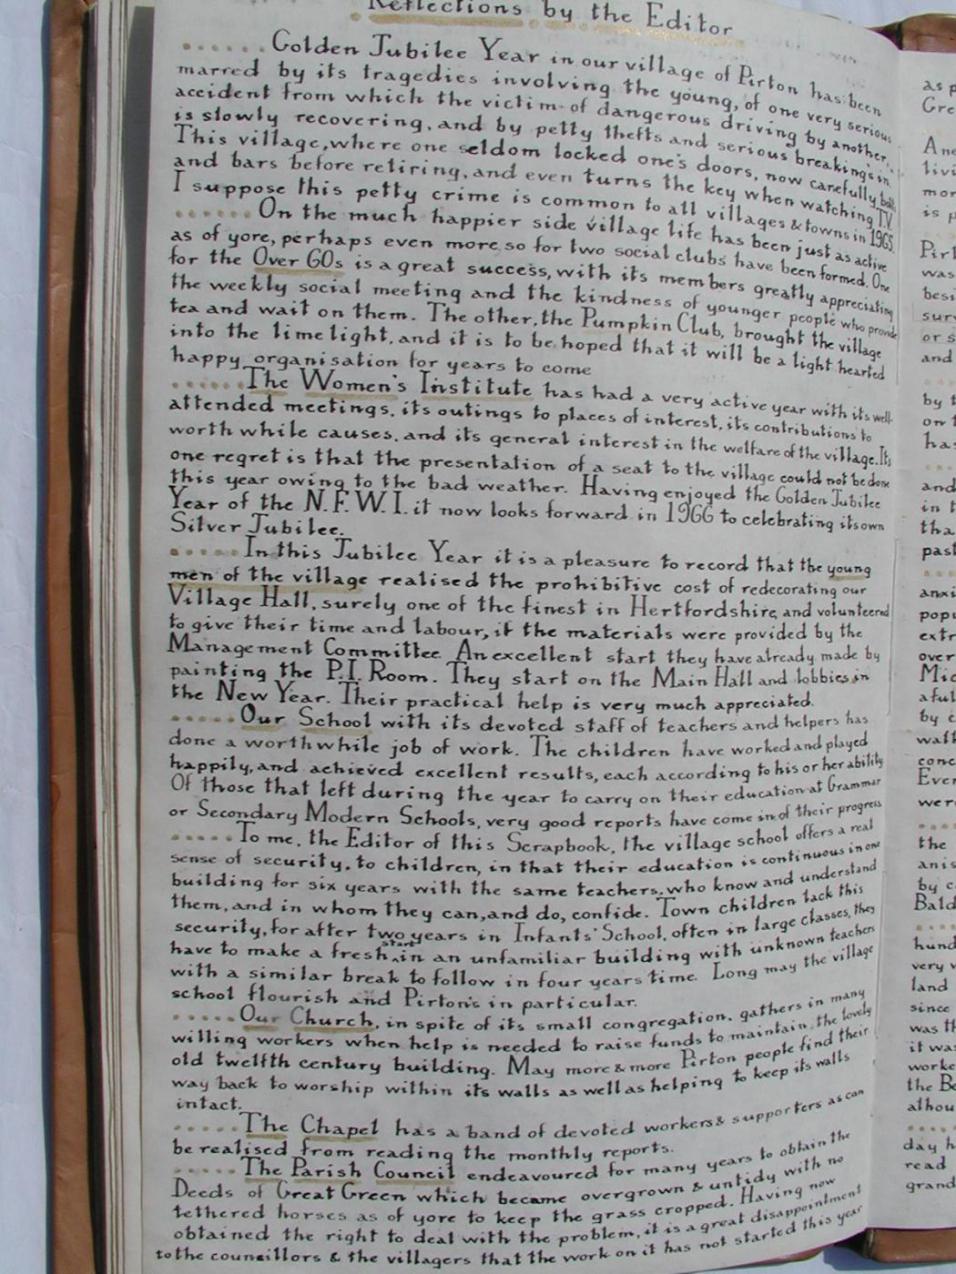 Reflections by the Editor
...... Golden Jubilee Year in our village of Pirton has been
marred by its tragedies involving the young, of one very serious
accident from which the victim of dangerous driving by another,
is slowly recovering, and by petty thefts and serious breakings in.
This village, where one seldom locked one's doors, now carefully bolts
and bars before retiring, and even turns the key when watching T.V.
I suppose this petty crime is common to all villages & towns in 1965.
...... On the much happier side village life has been just as active
as of yore, perhaps even more so for two social clubs have been formed. One
for the Over 60s is a great success, with its members greatly appreciating
the weekly social meeting and the kindness of younger people who provide
tea and wait on them. The other, the Pumpkin Club, brought the village
into the limelight, and it is to be hoped that it will be a light hearted
happy organisation for years to come
...... The Women's Institute has had a very active year with its well-
attended meetings, its outings to places of interest, its contributions to
worth while causes, and its general interest in the welfare of the village. Its
one regret is that the presentation of a seat to the village could not be done
this year owing to the bad weather. Having enjoyed the Golden Jubilee
Year of the N.F.W.I. it now looks forward in 1966 to celebrating its own
Silver Jubilee.
...... In this Jubilee Year it is a pleasure to record that the young
men of the village realised the prohibitive cost of redecorating our
Village Hall, surely one of the finest in Hertfordshire, and volunteered
to give their time and labour, if the materials were provided by the
Management Committee. An excellent start they have already made by
painting the P.I. Room. They start on the Main Hall and lobbies in
the New Year. Their practical help is very much appreciated.
...... Our School with its devoted staff of teachers and helpers has
done a worthwhile job of work. The children have worked and played
happily, and achieved excellent results, each according to his or her ability
Of those that left during the year to carry on their education at Grammar
or Secondary Modern Schools, very good reports have come in of their progress
...... To me, the Editor of this Scrapbook, the village school offers a real
sense of security, to children, in that their education is continuous in one
building for six years with the same teachers, who know and understand
them, and in whom they can, and do, confide. Town children lack this
security, for after two years in Infants' School, often in large classes, they
have to make a fresh start in an unfamiliar building with unknown teachers
with a similar break to follow in four years time. Long may the village
school flourish and Pirton's in particular.
...... Our Church, in spite of its small congregation, gathers in many
willing workers when help is needed to raise funds to maintain the lovely
old twelfth century building. May more & more Pirton people find their
way back to worship within its walls as well as helping to keep its walls
intact.
...... The Chapel has a band of devoted workers & supporters as can
be realised from reading the monthly reports.
...... The Parish Council endeavoured for many years to obtain the
Deeds of Great Green which became overgrown & untidy with no
tethered horses as of yore to keep the grass cropped. Having now
obtained the right to deal with the problem, it is a great disappointment
to the councillors & the villagers that the work on it has not started this year